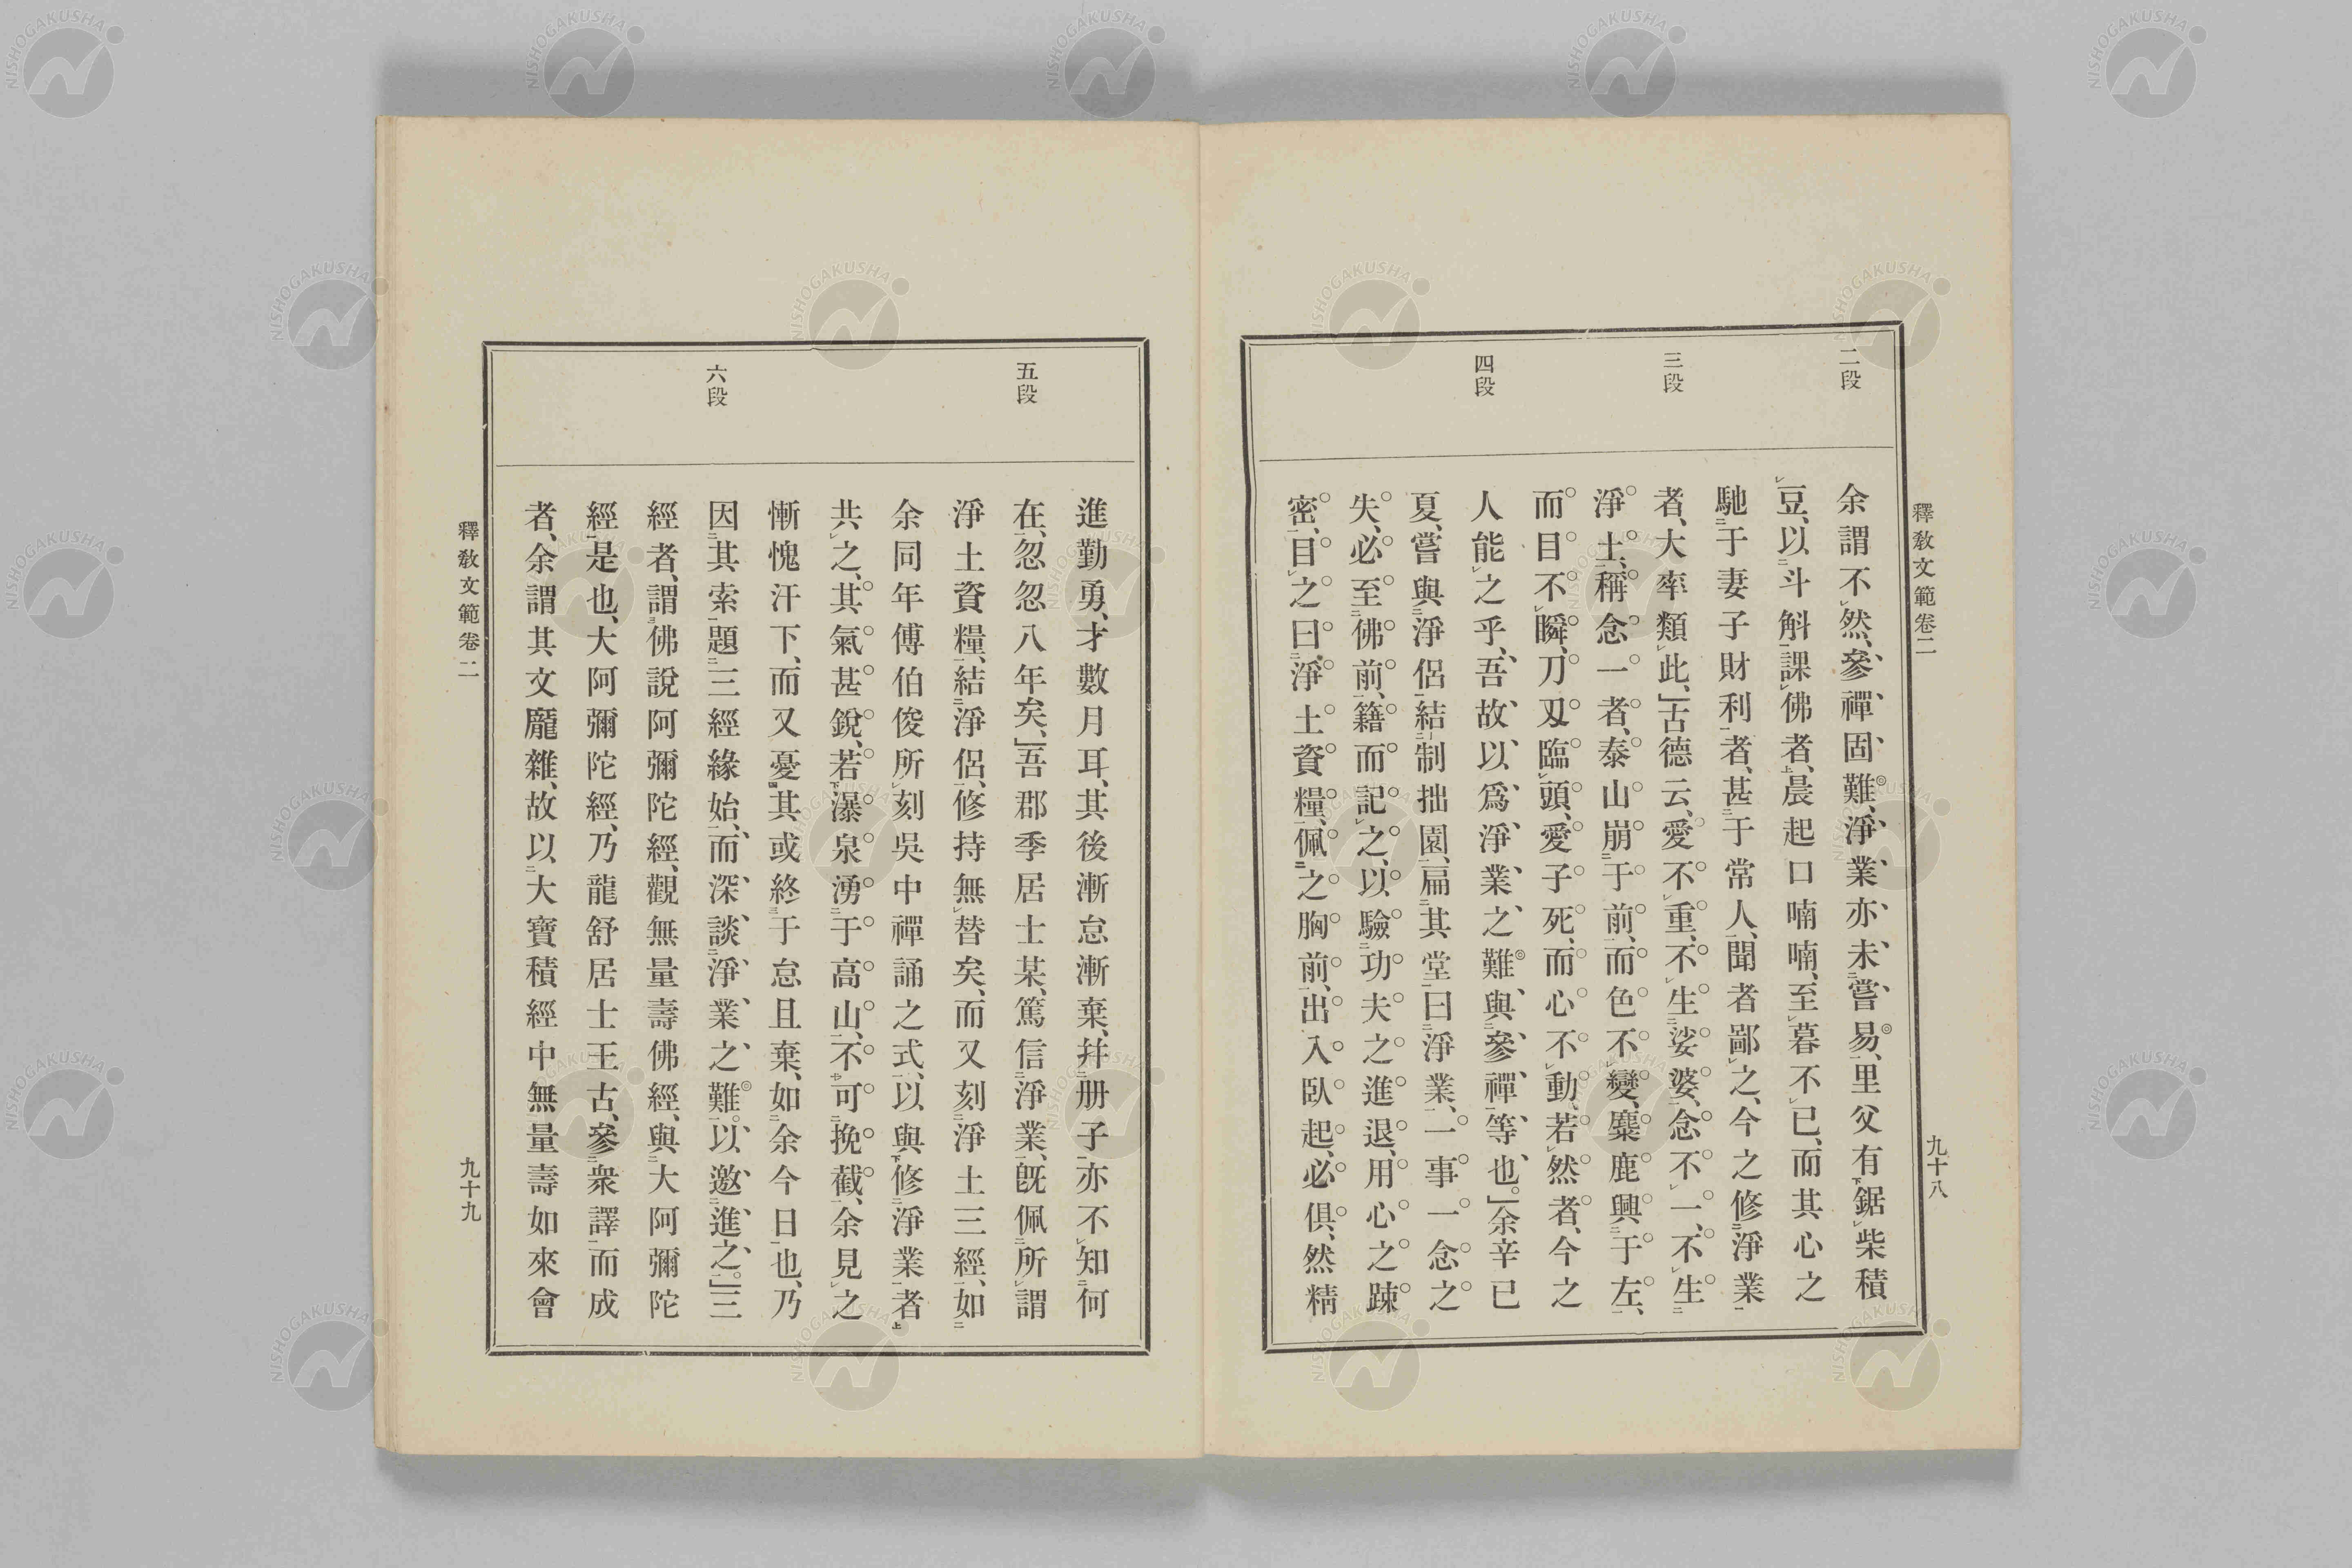 釋教文範卷二
九十八
二段
三段
四段
余謂不然、參禪固難、淨業亦未嘗易、里父有鋸柴積
豆、以斗斛課佛者、晨起口喃喃、至暮不已、而其心之
馳于妻子財利者、甚于常人、聞者鄙之、今之修淨業
者、大率類此、」古德云、愛不重、不生娑婆、念不一、不生
淨土、稱念一者、泰山崩于前、而色不變、麋鹿興于左、
而目不瞬、刀刄臨頭、愛子死、而心不動、若然者、今之
人能之乎、吾故以爲淨業之難、與參禪等也。」余辛已
夏、嘗與淨侶結制拙園、扁其堂曰淨業、一事一念之
失、必至佛前、籍而記之、以驗功夫之進退、用心之踈
密、目之曰淨土資糧、佩之胸前、出入臥起、必俱、然精
五段
六段
進勤勇、才數月耳、其後漸怠漸棄、幷册子亦不知何
在、忽忽八年矣、」吾郡季居士某、篤信淨業、既佩所謂
淨土資糧、結淨侶、修持無替矣、而又刻淨土三經、如
余同年傅伯俊所刻吳中禪誦之式、以與修淨業者
共之、其氣甚銳、若瀑泉湧于高山、不可挽截、余見之
慚愧汗下、而又憂其或終于怠且棄、如余今日也、乃
因其索題三經緣始、而深談淨業之難。以邀進之。」三
經者、謂佛說阿彌陀經、觀無量壽佛經、與大阿彌陀
經是也、大阿彌陀經、乃龍舒居士王古、參衆譯而成
者、余謂其文龐雜、故以大寶積經中無量壽如來會
釋教文範卷二
九十九